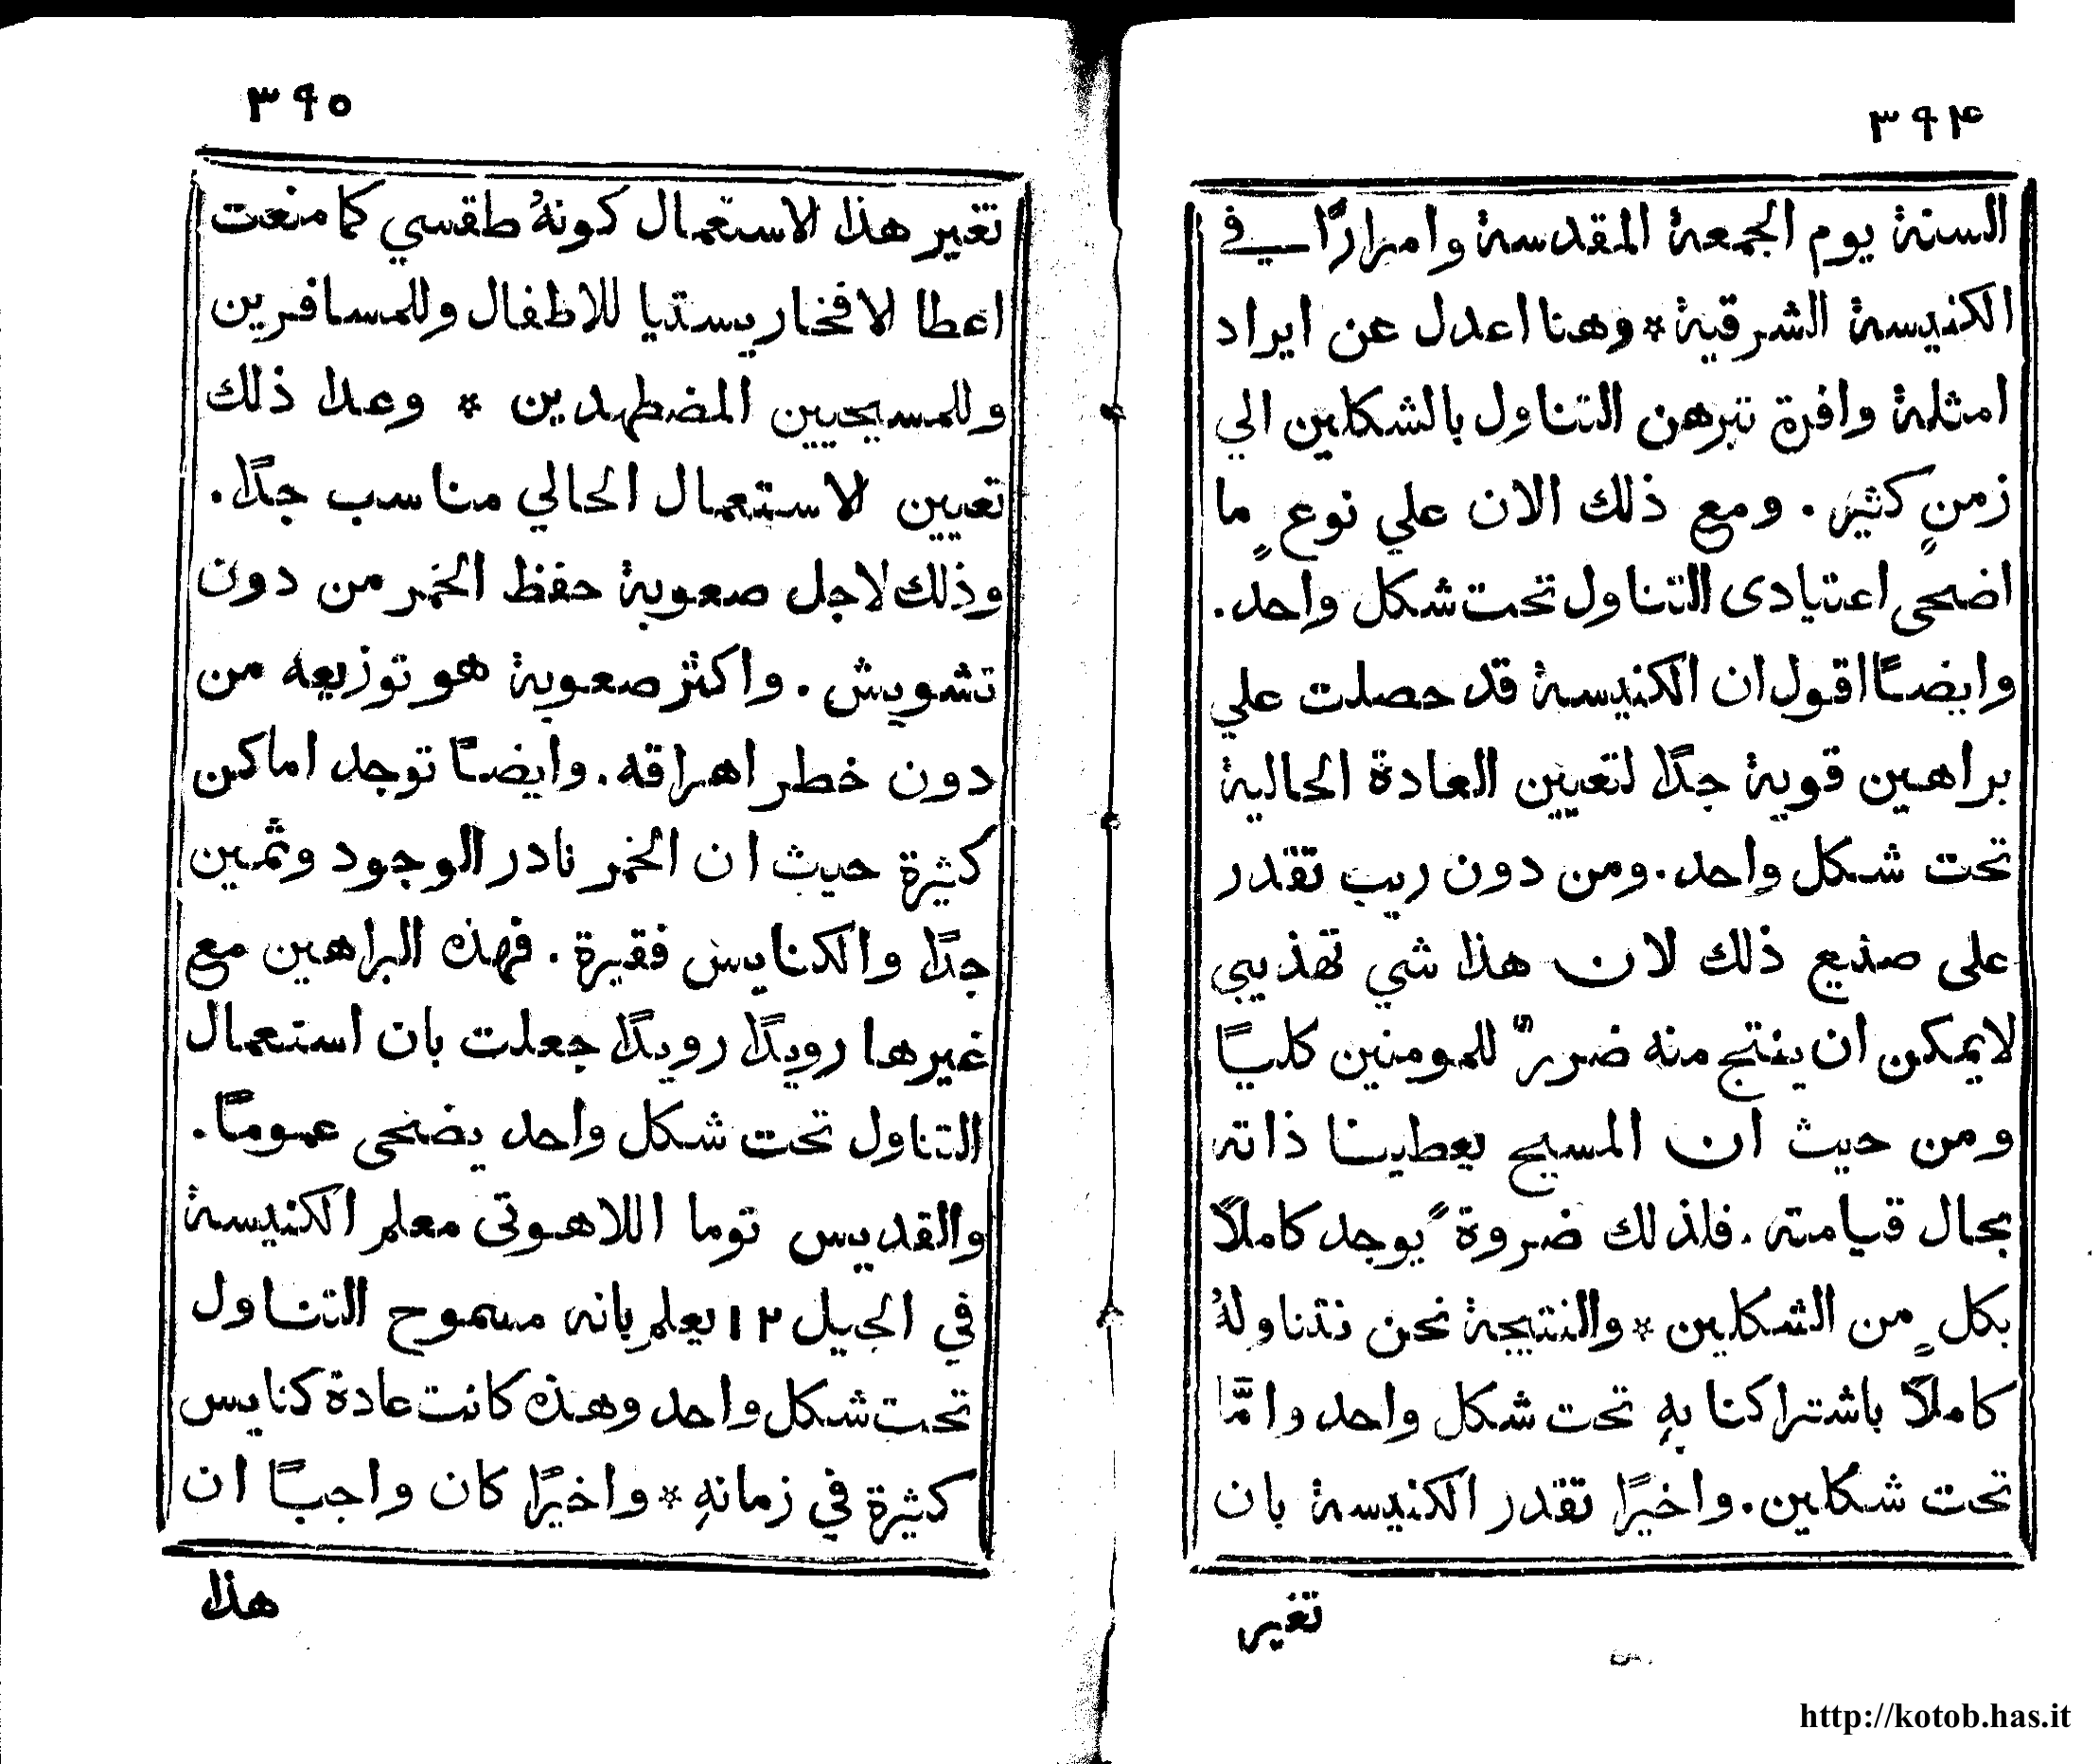 ٣٩٤
السنة يوم الجمعة المقدسة وامرارًا في
الكنيسة الشرقية * وهنا اعدل عن ايراد
امثلة وافرة تبرهن التناول بالشكلين الي
زمنٍ كثير . ومع ذلك الان علي نوعٍ ما
اضحى اعتيادى التناول تحت شكل واحد.
وايضًا اقول ان الكنيسة قد حصلت علي
براهين قوية جدًا لتعيين العادة الحالية
تحت شكل واحد. ومن دون ريب تقدر
على صنيع ذلك لان هذا شي تهذيبي
لايمكن ان ينتج منه ضررٌ للمومنين كليًا
ومن حيث ان المسيح يعطينا ذاته
بحال قيامته. فلذلك ضروةً يوجد كاملًا
بكلٍ من الشكلين * والنتيجة نحن نتناولهُ
كاملًا باشتراكنا بهِ تحت شكل واحد وامَّا
تحت شكلين. واخيرًا تقدر الكنيسة بان
تغير
٣٩٥
تغير هذا الاستعمال كونهُ طقسي كما منعت
اعطا الافخاريستيا للاطفال وللمسافرين
وللمسيحيين المضطهدين * وعدا ذلك
تعيين الاستعمال الحالي مناسب جدًا.
وذلك لاجل صعوبة حفظ الخمر من دون
تشويش. واكثر صعوبة هو توزيعه من
دون خطر اهراقه. وايضًا توجد اماكن
كثيرة حيث ان الخمر نادر الوجود وثمين
جدًا والكنايس فقيرة. فهذه البراهين مع
غيرها رويدًا رويدًا جعلت بان استعمال
التناول تحت شكل واحد يضحى عمومًا.
والقديس توما اللاهوتى معلم الكنيسة
في الجيل ١٢ يعلم بانه مسموح التناول
تحت شكل واحد وهذه كانت عادة كنايس
كثيرة في زمانهِ * واخيرًا كان واجبًا ان
هذا
http://kotob.has.it